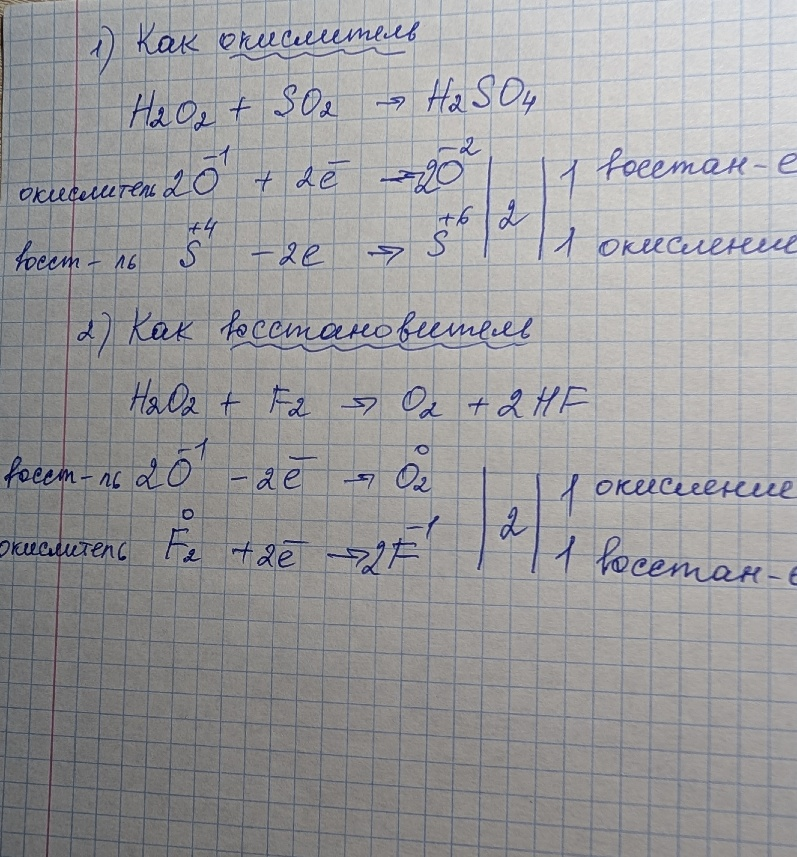 1) Как окислитель
H₂O₂ + SO₂ → H₂SO₄
окислитель 2O⁻¹ + 2e̅ → 2O⁻² | 2 | 1 восстан-е
восст-ль S⁺⁴ - 2e → S⁺⁶ | 1 окисление
2) Как восстановитель
H₂O₂ + F₂ → O₂ + 2HF
восст-ль 2O⁻¹ - 2e̅ → O₂⁰ | 2 | 1 окисление
окислитель F₂⁰ + 2e̅ → 2F⁻¹ | 1 восстан-е